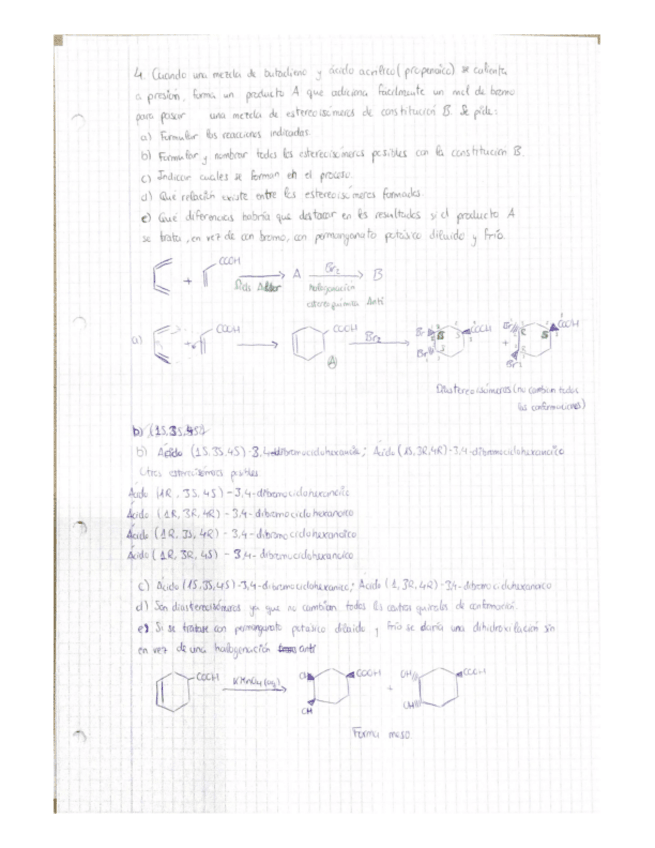 4. Cuando una mezcla de butadieno y ácido acrílico (propenoico) se calienta
a presión, forma un producto A que adiciona facilmente un mol de bromo
para pasar una mezcla de estereoisómeros de constitución B. Se pide:
a) Formular las reacciones indicadas.
b) Formular y nombrar todos los estereoisómeros posibles con la constitución B.
c) Indicar cuales se forman en el proceso.
d) Qué relación existe entre los estereoisómeros formados.
e) Qué diferencias habría que destacar en los resultados si el producto A
se trata, en vez de con bromo, con permanganato potásico diluido y frío.
COOH
+ → A Br₂ → B
Diels Alder halogenación
estereoquímica Anti
a) + COOH → COOH Br₂ → Br Br COOH + Br Br COOH
A
Diastereoisómeros (no cambian todas
las conformaciones)
b) (1S,3S,4S)
b) Ácido (1S,3S,4S)-3,4-dibromociclohexanoico; Ácido (1S,3R,4R)-3,4-dibromociclohexanoico
Otros estereoisómeros posibles
Ácido (1R, 3S, 4S) - 3,4-dibromociclohexanoico
Ácido (1R, 3R, 4R) - 3,4-dibromociclohexanoico
Ácido (1R, 3S, 4R) - 3,4-dibromociclohexanoico
Ácido (1R, 3R, 4S) - 3,4-dibromociclohexanoico
c) Ácido (1S,3S,4S)-3,4-dibromociclohexanoico; Ácido (1,3R,4R)-3,4-dibromociclohexanoico
d) Son diastereoisómeros ya que no cambian todos los centros quirales de conformación.
e) Si se tratase con permanganato potásico diluido y frío se daría una dihidroxilación sin
en vez de una halogenación anti
COOH KMnO₄ (aq) → OH COOH + OH COOH
OH OH
Forma meso